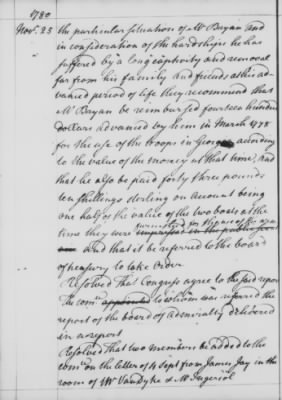 1780
Novr. 23 the particular situation of Mr Bryan and
in consideration of the hardships he has
suffered by a long captivity and removal
far from his family and friends at his ad-
vanced period of life they recommend that
Mr Bryan be reimbursed fourteen hundred
dollars advanced by him in March 1778
for the use of the troops in Georgia according
to the value of the money at that time, and
that he also be paid forty three pounds
ten shillings sterling on account being
one half of the value of the two boats at the
time they were impressed in the public service
and that it be referred to the board
of treasury to take order
Resolved That Congress agree to the said report
The comee appointed to whom was referred the
report of the board of admiralty delivered
in a report
Resolved That two members be added to the
comee on the letter of 4 Sept from James Jay in the
room of Mr Van Dyke & Mr Ingersol